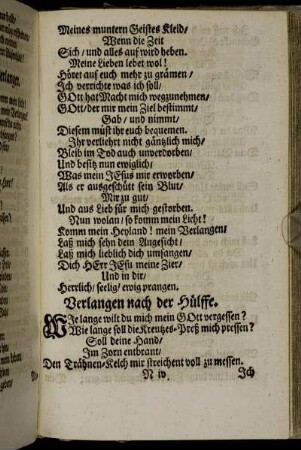 Meines muntern Geistes Kleid/
Wenn die Zeit
Sich/ und alles auf wird heben.
Meine Lieben lebet wol!
Höret auf euch mehr zu grämen/
Ich verrichte was ich soll/
GOtt hat Macht mich wegzunehmen/
GOtt/ der mir mein Ziel bestimmt/
Gab/ und nimmt/
Diesem müst ihr euch bequemen.
Ihr verliehrt nicht gäntzlich mich/
Bleib im Tod auch unverdorben/
Und besitz nun ewiglich/
Was mein JEsus mir erworben/
Als er ausgeschütt sein Blut/
Mir zu gut/
Und aus Lieb für mich gestorben.
Nun wolan/ so komm mein Licht!
Komm mein Heyland! mein Verlangen/
Laß mich sehn dein Angesicht/
Laß mich lieblich dich umfangen/
Dich HErr JEsu meine Zier/
Und in dir/
Herrlich/ seelig/ ewig prangen.
Verlangen nach der Hülffe.
WIe lange wilt du mich mein GOtt vergessen?
Wie lange soll die Kreutzes-Preß mich pressen?
Soll deine Hand/
Im Zorn entbrant/
Den Trähnen-Kelch mir streichent voll zu messen.
N iv. Ich